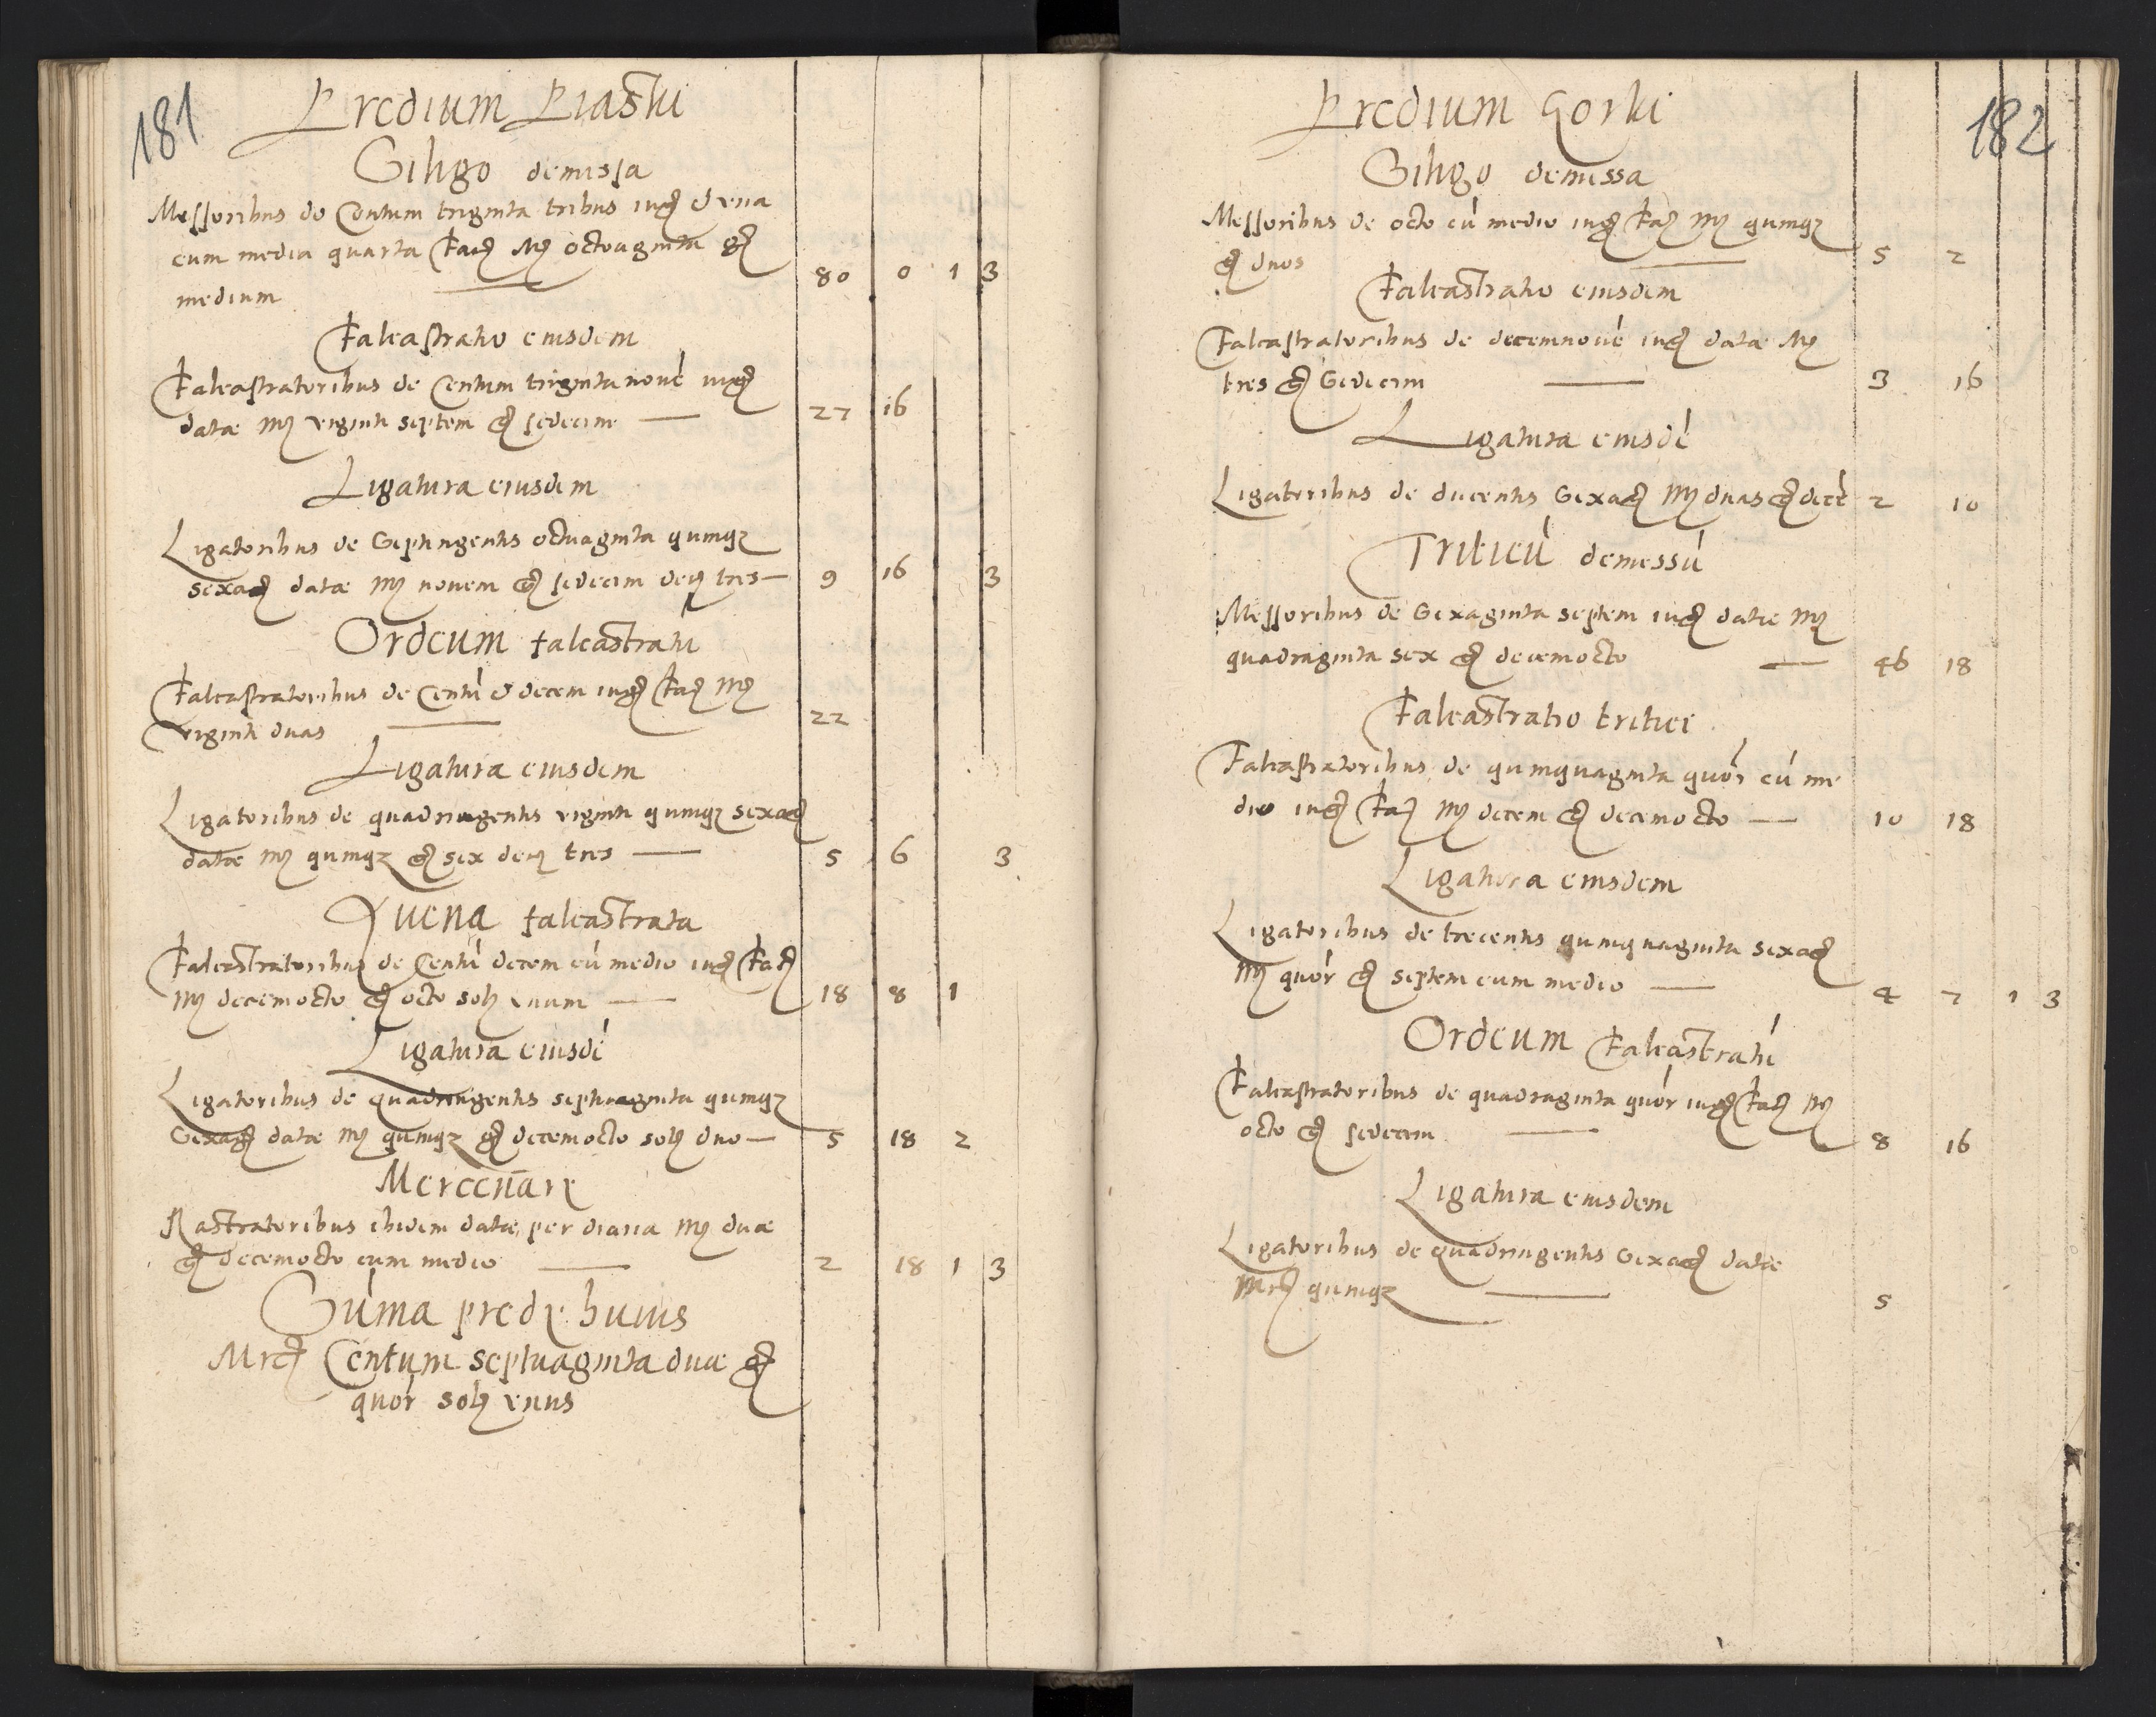 181
Predium Piaski
Siligo demissa
Messoribus de Centum triginta tribus iug et una
cum media quarta fact Mr octoaginta gr
medium 80 0 1 3
Falcastratio eiusdem
Falcastratoribus de Centum triginta nové iug
datæ Mr viginti septem gr sedecim 27 16
Ligatura eiusdem
Ligatoribus de Septingentis octuaginta quinqz
sexag datæ Mr novem gr sedecim den tres 9 16 3
Ordeum falcastratū
Falcastratoribus de Centū et decem iug fact Mr
viginti duas 22
Ligatura eiusdem
Ligatoribus de quadringentis viginti quinqz sexag
datæ Mr quinqz gr sex den tres 5 6 3
Auena falcastrata
Falcastratoribus de Centū decem cū medio iug fact
Mr decemocto gr octo solz unum 18 8 1
Ligatura eiusdē
Ligatoribus de quadringentis septuaginta quinqz
Sexag datæ Mr quinqz gr decemocto solz duo 5 18 2
Mercenarÿ
Rastratoribus ibidem datæ per diaria Mr duæ
gr decemocto cum medio 2 18 1 3
Sūma predÿ huius
Mrc Centum septuaginta duæ gr
quor solz unus
182
Predium Gorki
Siligo demissa
Messoribus de octo cū medio iug fact Mr quinqz
gr duos 5 2
Falcastratio eiusdem
Falcastratoribus de decemnovē iug datæ Mr
tres gr Sedecim 3 16
Ligatura eiusdē
Ligatoribus de ducentis Sexag Mr duas gr decē 2 10
Triticū demessū
Messoribus de Sexaginta septem iug datæ Mr
quadraginta sex gr decemocto 46 18
Falcastratio tritici
Falcastratoribus de quinquaginta quor cū me
dio iug fact Mr decem gr decemocto 10 18
Ligatura eiusdem
Ligatoribus de trecentis quinquaginta sexag
Mr quor gr septem cum medio 4 7 1 3
Ordeum Falcastratū
Falcastratoribus de quadraginta quor iug fact Mr
octo gr sedecim 8 16
Ligatura eiusdem
Ligatoribus de quadringentis Sexag datæ
Mrc quinqz 5